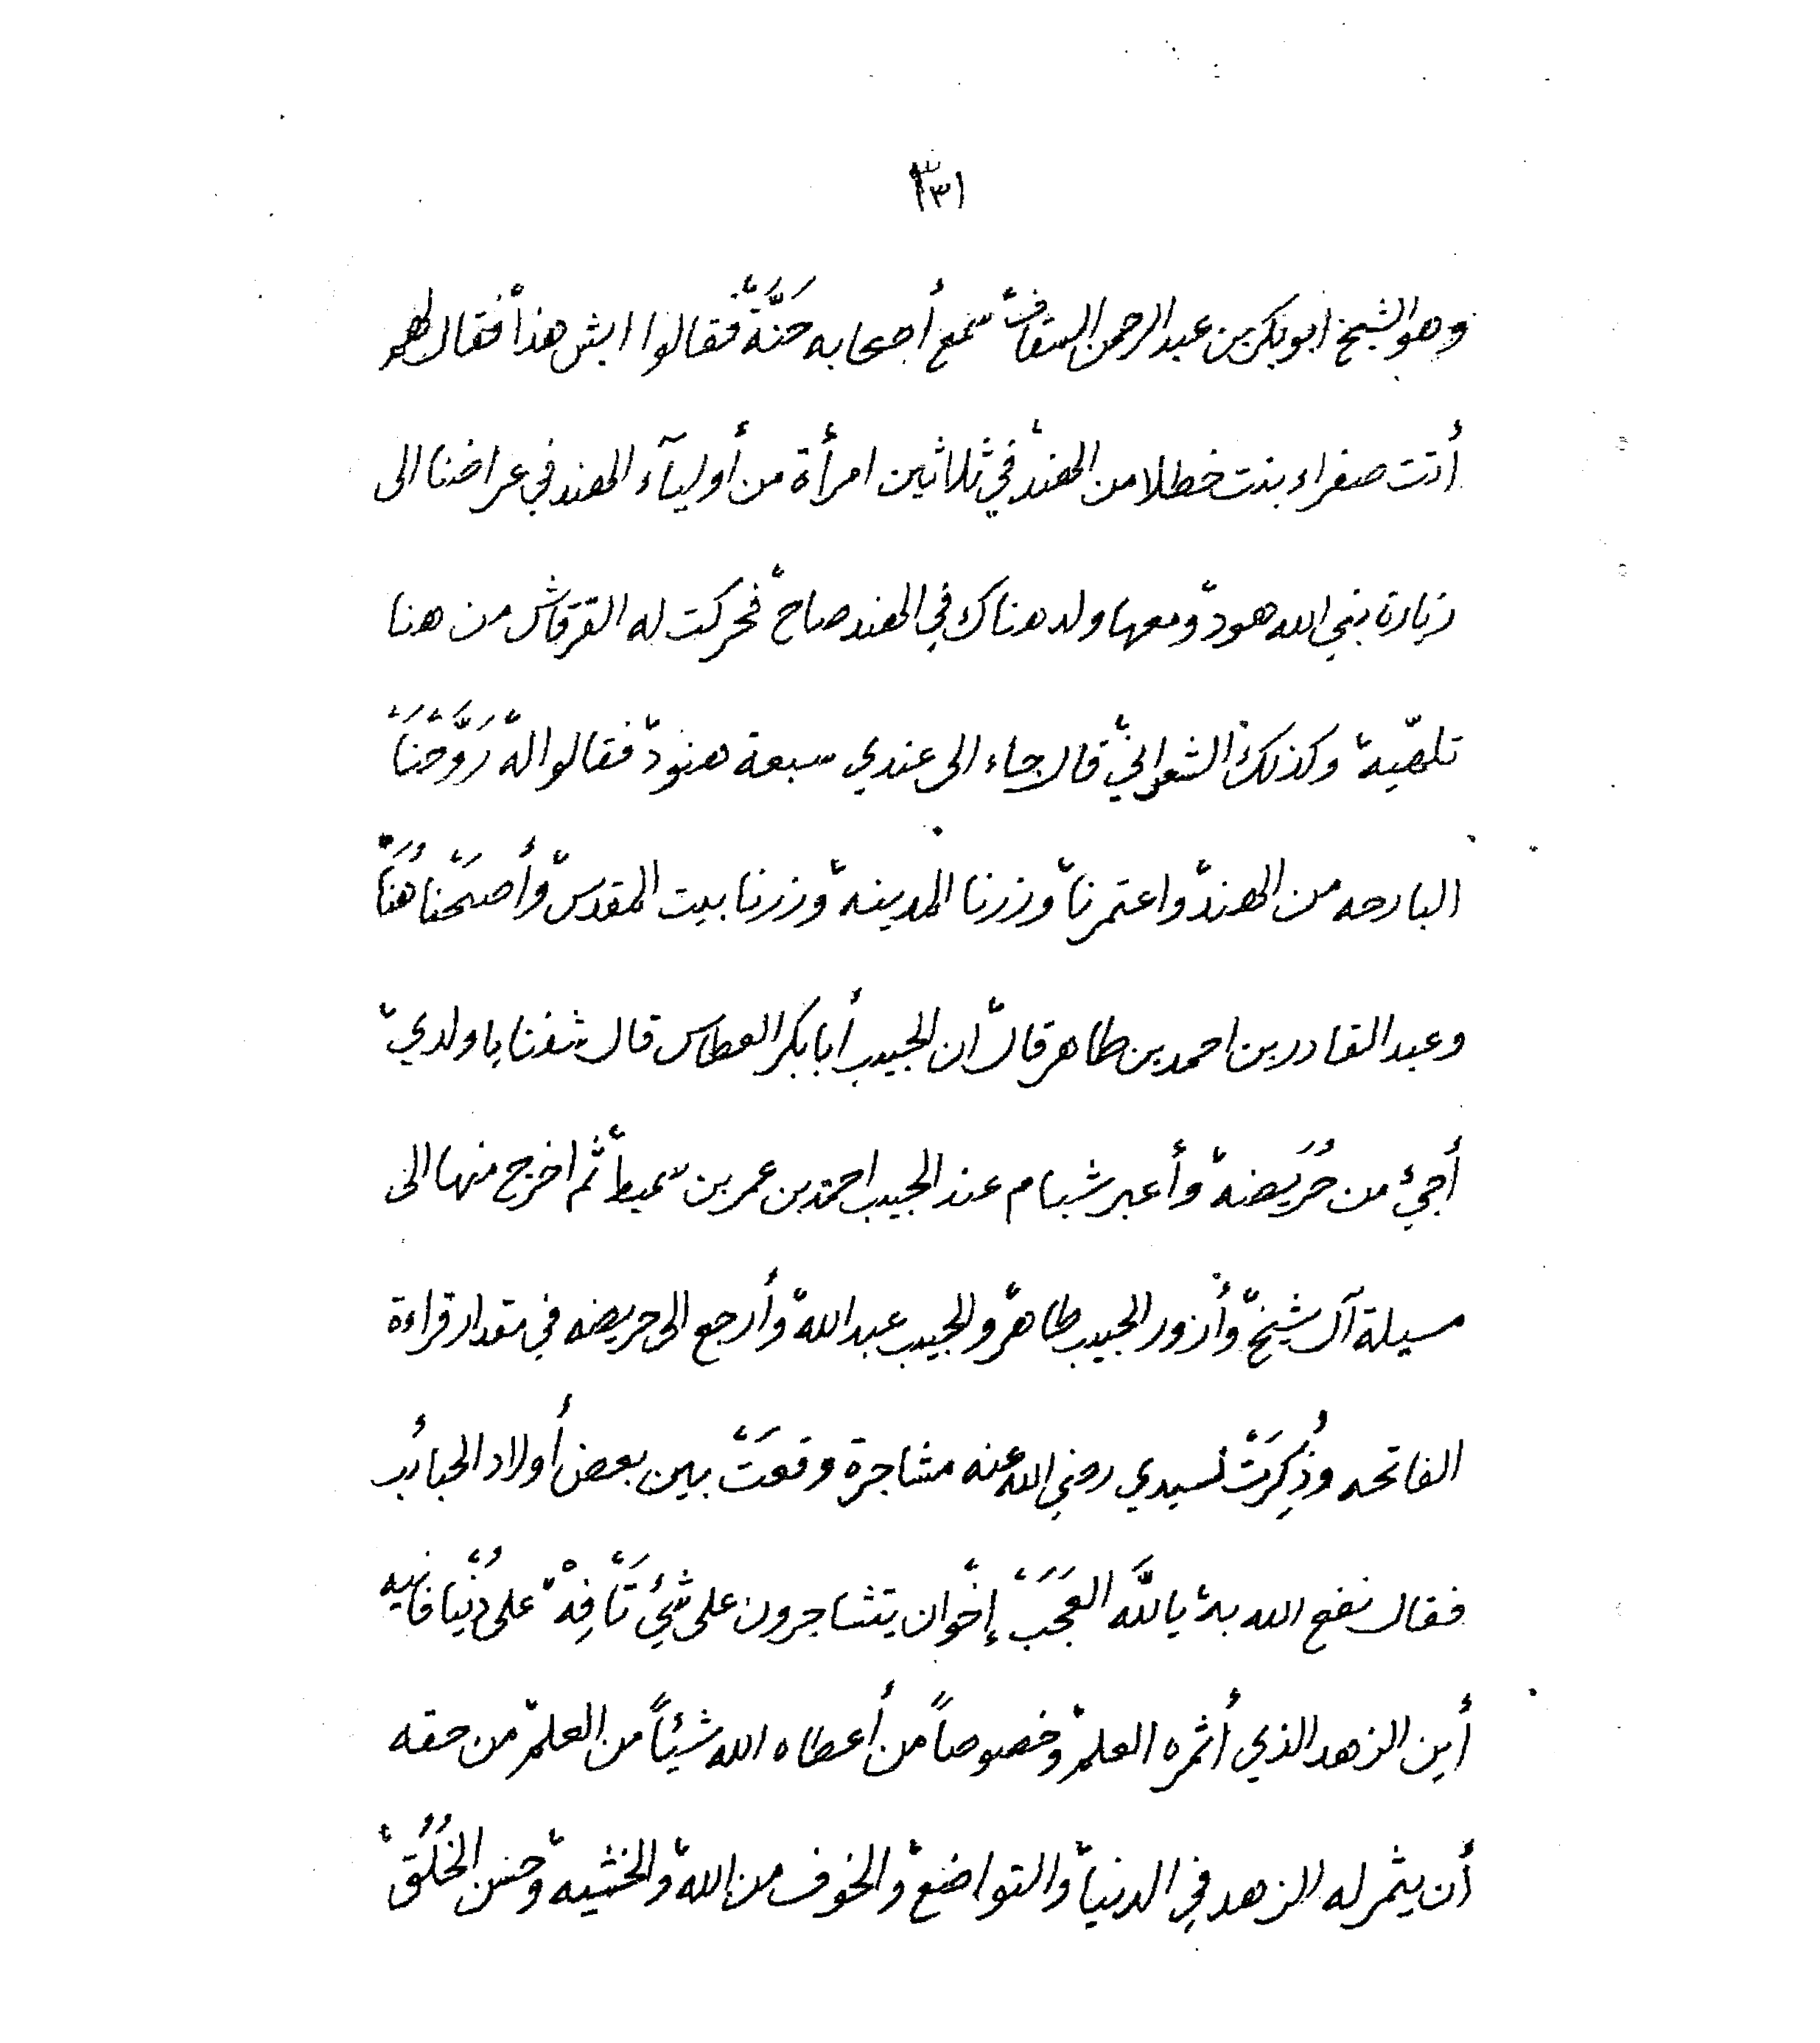 ٣٣١
وهو الشيخ ابوبكر بن عبدالرحمن السقاف، سمع أصحابه حَنَّةً، فقالوا ايش هذا، فقال لهم
أتت صفراء بنت خطلا من الهند، في ثلاثين امرأة من أوليآء الهند في عراضنا الى
زيارة نبي الله هود، ومعها ولد هناك في الهند صاح، فحركت له القرقاش من هنا
تلهّيه، وكذلك الشعراني، قال جاء الى عندي سبعة هنود، فقالوا له، رَوَّحْنَا،
البارحه من الهند، واعتمرنا، وزرنا المدينه، وزرنا بيت المقدس، وأصبَحْنا هُنَا،
وعبد القادر بن احمد بن طاهر قال، ان الحبيب أبابكر العطاس قال شفنا ياولدي،
أجيْ من حُرَيضه، وأعبر شبام عند الحبيب احمد بن عمر بن سميط، ثم اخرج منها الى
مسيلة آل شيخ، وأزور الحبيب طاهر، والحبيب عبدالله، وأرجع الى حريضه في مقدار قراءة
الفاتحه، وذُكِرَتْ لسيدي رضي الله عنه مشاجرة وقعَتْ، بين بعض أولاد الحبائب
فقال نفع الله به، يا لله العَجَبَ، إخْوان يتشاجرون على شيْئ تَافِهْ، على دُنْيا فانيه
أين الزهد الذي أثمره العلم، وخصوصاً من أعطاه الله شيئاً من العلم، من حقه
أن يثمر له الزهد في الدنيا، والتواضع، والخوف من الله، والخشيه، وحسن الخُلُق،